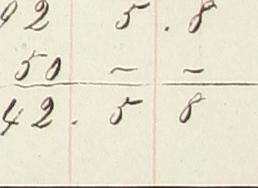 92 5 . 8
50 – –
42 . 5 8